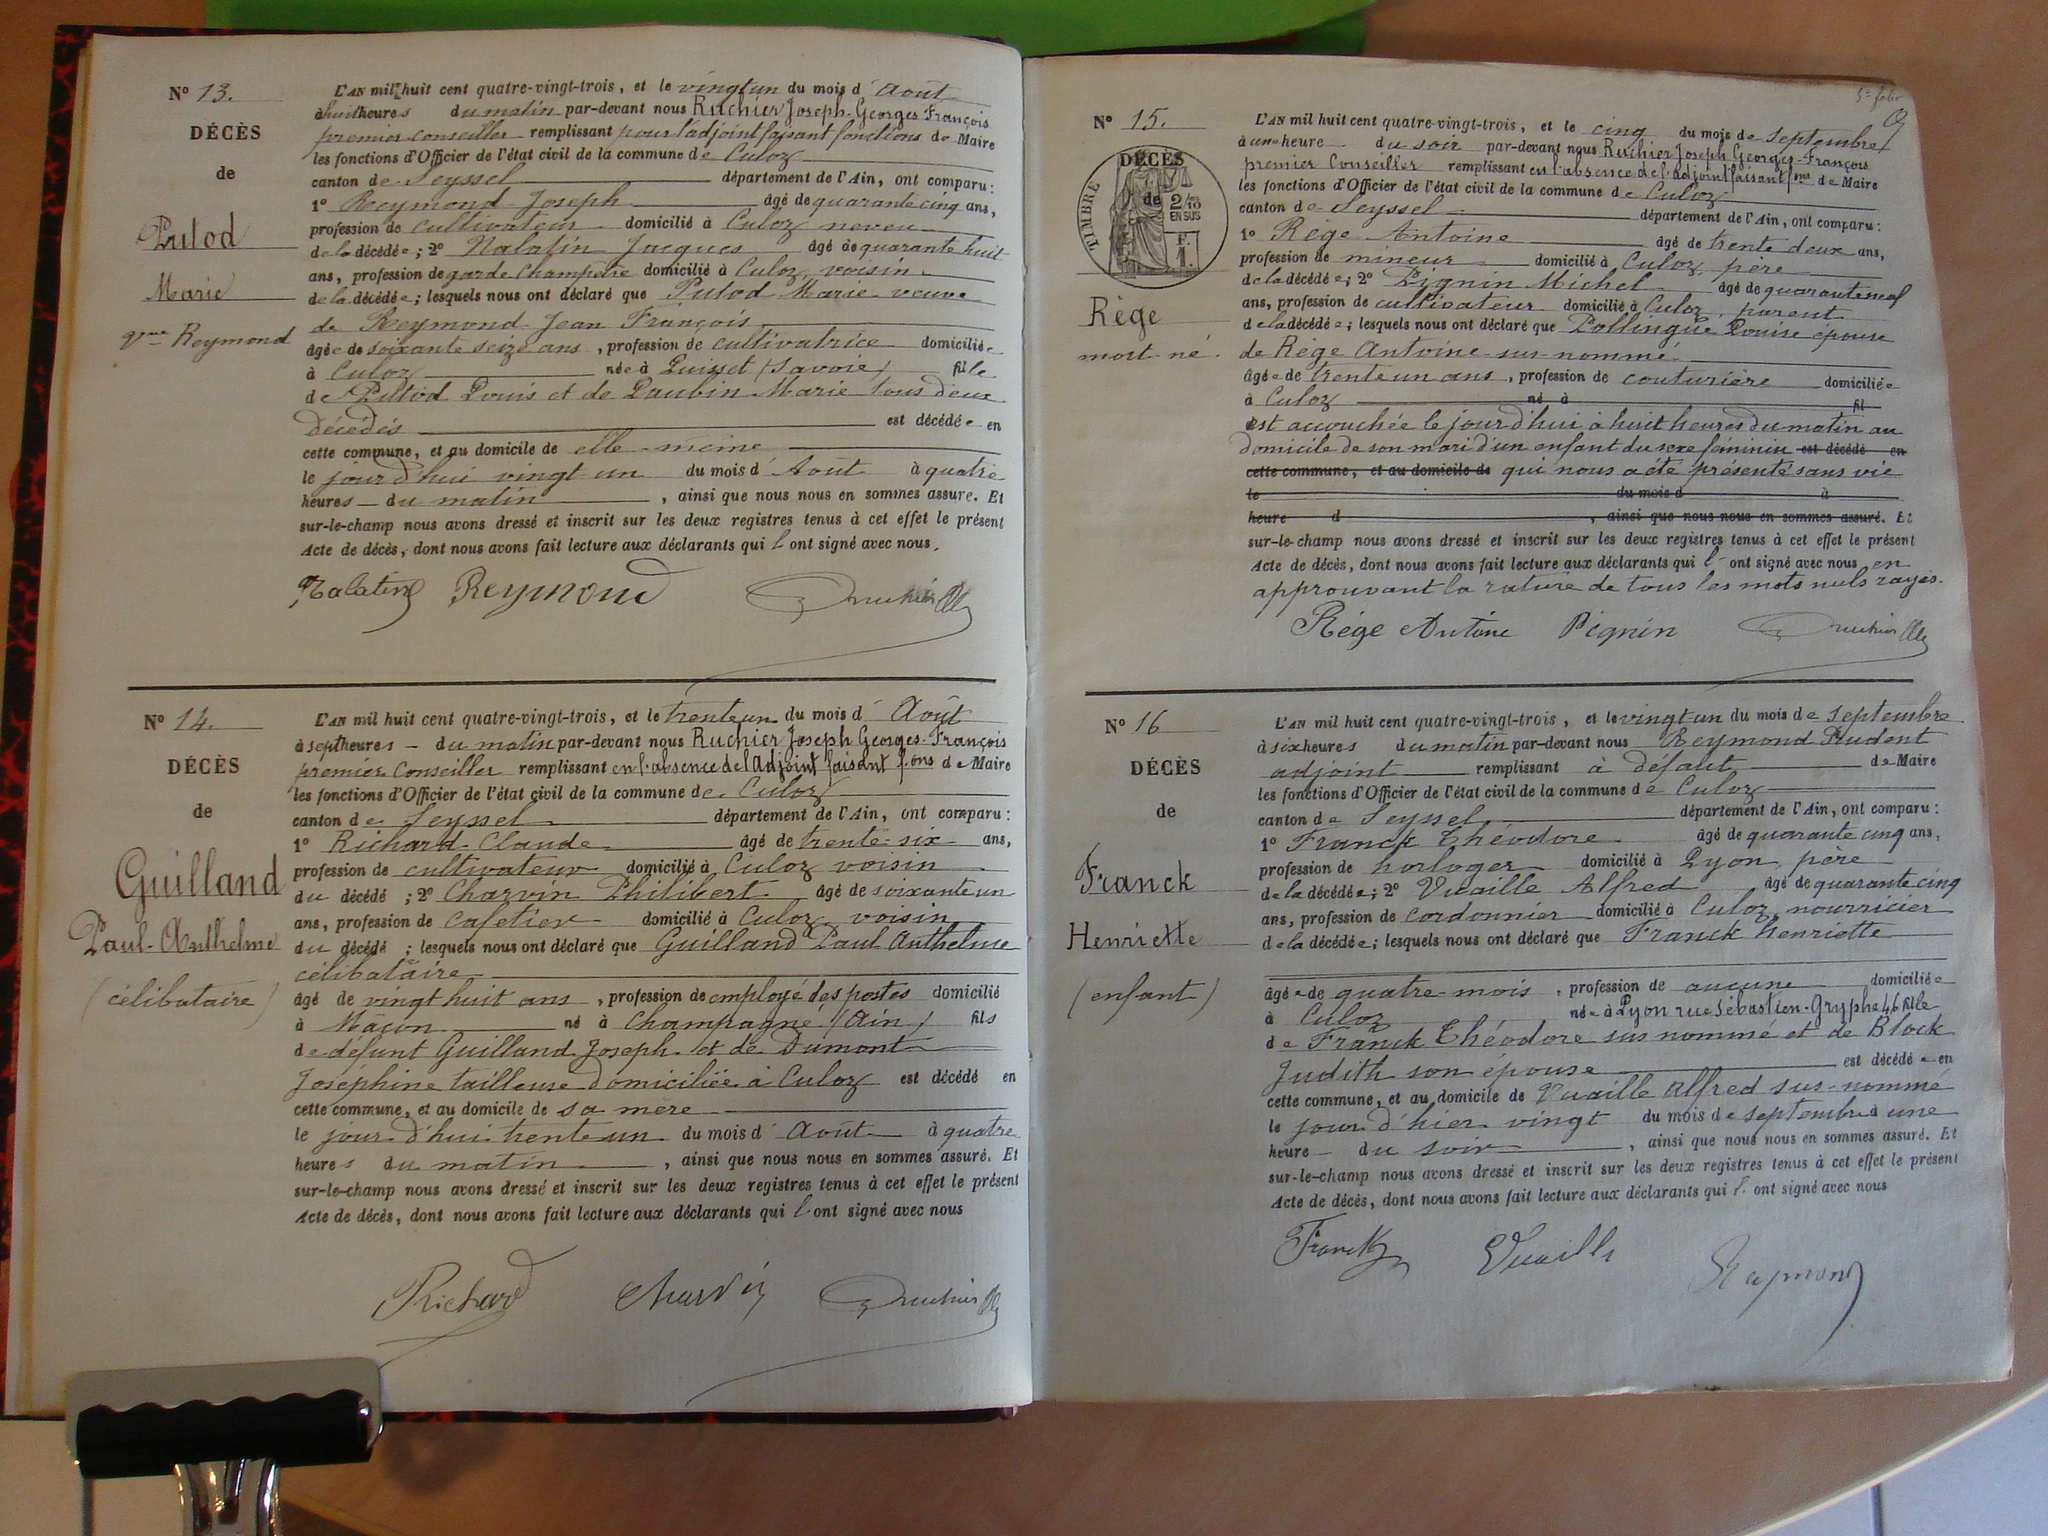 N° 13.
DÉCÈS
de
Pulod
Marie
vve Reymond
L'AN mil huit cent quatre-vingt-trois, et le vingt un du mois d'Août
à huit heures du matin par-devant nous Ruchier Joseph Georges François
premier conseiller remplissant pour l'adjoint faisant fonctions de Maire
les fonctions d'Officier de l'état civil de la commune de Culoz
canton de Seyssel département de l'Ain, ont comparu :
1° Reymond Joseph âgé de quarante cinq ans,
profession de cultivateur domicilié à Culoz neveu
de la décédée ; 2° Nalatin Jacques âgé de quarante huit
ans, profession de garde champêtre domicilié à Culoz, voisin
de la décédée ; lesquels nous ont déclaré que Pulod Marie veuve
de Reymond Jean François
âgée de soixante seize ans, profession de cultivatrice domiciliée
à Culoz née à (Savoie) fille
de Pulod Louis et de Marie tous deux
décédés est décédée en
cette commune, et au domicile de elle-même
le jour d'hui vingt un du mois d'Août à quatre
heures du matin, ainsi que nous nous en sommes assuré. Et
sur-le-champ nous avons dressé et inscrit sur les deux registres tenus à cet effet le présent
Acte de décès, dont nous avons fait lecture aux déclarants qui l'ont signé avec nous.
Nalatin Reymond Jh Ruchier
N° 14.
DÉCÈS
de
Guilland
Paul-Anthelme
(célibataire)
L'AN mil huit cent quatre-vingt-trois, et le trente un du mois d'Août
à sept heures du matin par-devant nous Ruchier Joseph Georges-François
premier Conseiller remplissant en l'absence de l'Adjoint faisant fons de Maire
les fonctions d'Officier de l'état civil de la commune de Culoz
canton de Seyssel département de l'Ain, ont comparu :
1° Richard Claude âgé de trente-six ans,
profession de cultivateur domicilié à Culoz voisin
du décédé ; 2° Charvin Philibert âgé de soixante un
ans, profession de cafetier domicilié à Culoz, voisin
du décédé ; lesquels nous ont déclaré que Guilland Paul Anthelme
célibataire
âgé de vingt huit ans, profession de employé des postes domicilié
à Mâcon né à Champagne (Ain) fils
de défunt Guilland Joseph et de Dumont
Joséphine tailleuse domiciliée à Culoz est décédé en
cette commune, et au domicile de sa mère
le jour d'hui trente un du mois d'Août à quatre
heures du matin, ainsi que nous nous en sommes assuré. Et
sur-le-champ nous avons dressé et inscrit sur les deux registres tenus à cet effet le présent
Acte de décès, dont nous avons fait lecture aux déclarants qui l'ont signé avec nous
Richard Charvin Ruchier
5e folio
N° 15.
DÉCÈS
de
TIMBRE
2/10
EN SUS
F.
1.
Rège
mort-né.
L'AN mil huit cent quatre-vingt-trois, et le cinq du mois de septembre
à une heure du soir par-devant nous Ruchier Joseph Georges-François
premier Conseiller remplissant en l'absence de l'adjoint faisant fons de Maire
les fonctions d'Officier de l'état civil de la commune de Culoz
canton de Seyssel département de l'Ain, ont comparu :
1° Rège Antoine âgé de trente deux ans,
profession de mineur domicilié à Culoz, père
de la décédée ; 2° Pignin Michel âgé de quarante neuf
ans, profession de cultivateur domicilié à Culoz, parent
de la décédée ; lesquels nous ont déclaré que Pollingue Louise épouse
de Rège Antoine sus-nommé
âgée de trente un ans, profession de couturière domiciliée
à Culoz né à fil
est accouchée le jour d'hui à huit heures du matin au
domicile de son mari d'un enfant du sexe féminin est décédé en
cette commune, et au domicile de qui nous a été présenté sans vie
le du mois d à
heure d , ainsi que nous nous en sommes assuré. Et
sur-le-champ nous avons dressé et inscrit sur les deux registres tenus à cet effet le présent
Acte de décès, dont nous avons fait lecture aux déclarants qui l'ont signé avec nous en
approuvant la rature de tous les mots nuls rayés.
Rège Antoine Pignin Ruchier
N° 16
DÉCÈS
de
Franck
Henriette
(enfant)
L'AN mil huit cent quatre-vingt-trois, et le vingt-un du mois de septembre
à six heures du matin par-devant nous Reymond Prudent
adjoint remplissant à défaut de Maire
les fonctions d'Officier de l'état civil de la commune de Culoz
canton de Seyssel département de l'Ain, ont comparu :
1° Franck Théodore âgé de quarante cinq ans,
profession de horloger domicilié à Lyon, père
de la décédée ; 2° Vuaille Alfred âgé de quarante cinq
ans, profession de cordonnier domicilié à Culoz, nourricier
de la décédée ; lesquels nous ont déclaré que Franck Henriette
âgée de quatre mois, profession de aucune domiciliée
à Culoz née à Lyon rue Sébastien-Gryphe 46 fille
de Franck Théodore sus nommé et de Block
Judith son épouse est décédée en
cette commune, et au domicile de Vuaille Alfred sus-nommé
le jour d'hier vingt du mois de septembre à une
heure du soir, ainsi que nous nous en sommes assuré. Et
sur-le-champ nous avons dressé et inscrit sur les deux registres tenus à cet effet le présent
Acte de décès, dont nous avons fait lecture aux déclarants qui l'ont signé avec nous
Franck Vuaille Reymond